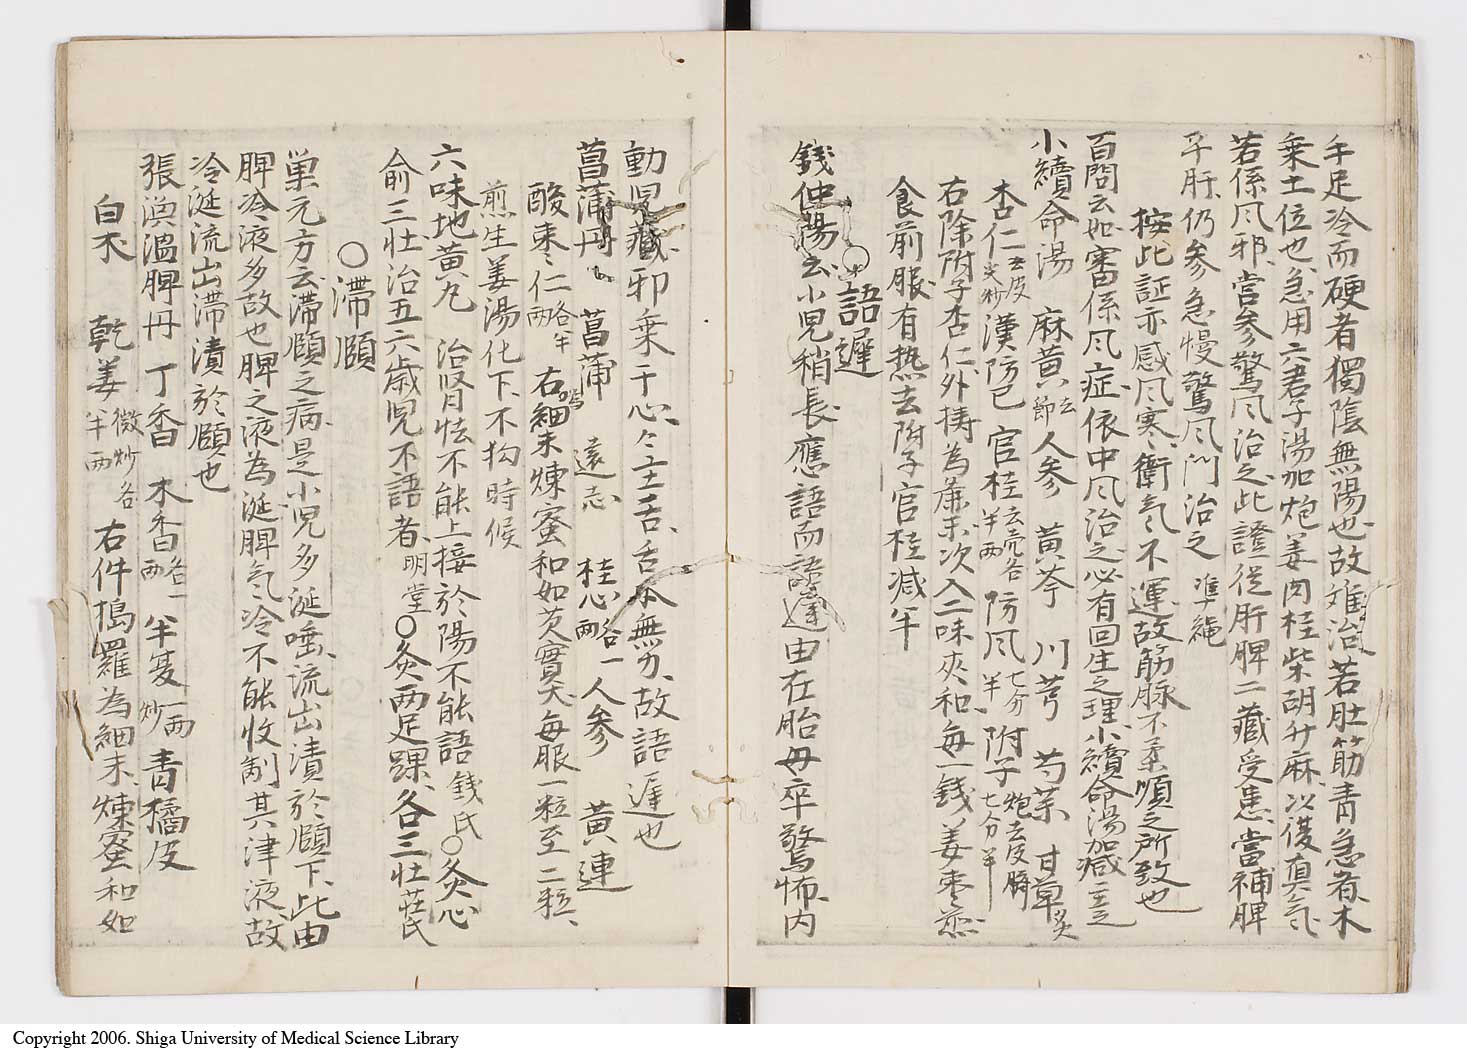 手足冷而硬者獨陰無陽也故难治若肚筋青急者木
乗土位也急用六君子湯加炮姜肉桂柴胡升麻以復真氣
若係风邪當参驚风治之此證従肝脾二藏受患當補脾
平肝仍参急慢驚风门治之 準繩
按此証亦感风寒衛气不運故筋脉不柔順之所致也
百問云如審係风症依中风治之必有回生之理小續命湯加減主之
小續命湯 麻黄去節 人参 黄芩 川芎 芍薬 甘草炙
杏仁去皮尖炒 漢防已 官桂去売各半両 防风七分半 附子炮去皮臍七分半
右除附子杏仁外擣為麁末次入二味夾和毎一錢姜枣煎
食前服有热去附子官桂减半
○語遲
錢仲陽云小児稍長應語而語遲由在胎母卒驚怖内
動児藏邪乗于心々主舌舌本無力故語遅也
菖蒲丹 菖蒲 遠志 桂心各一両 人参 黄連
酸枣仁各半両 右為細末煉蜜和如芡實大毎服一粒至二粒
煎生姜湯化下不拘時候
六味地黄丸 治肾怯不能上接於陽不能語 錢氏○灸心
俞三壮治五六歳児不語者 明堂○灸两足踝各三壮 莊氏
○滯頤
巣元方云滯頤之病是小児多涎唾流出漬於頤下此由
脾冷液多故也脾之液為涎脾气冷不能收制其津液故
冷涎流出滞漬於頤也
張渙温脾丹 丁香 木香各一両 半夏一両炒 青橘皮
白朮 乾姜微炒各半両 右件搗羅為細末煉蜜和如
Copyright 2006. Shiga University of Medical Science Library